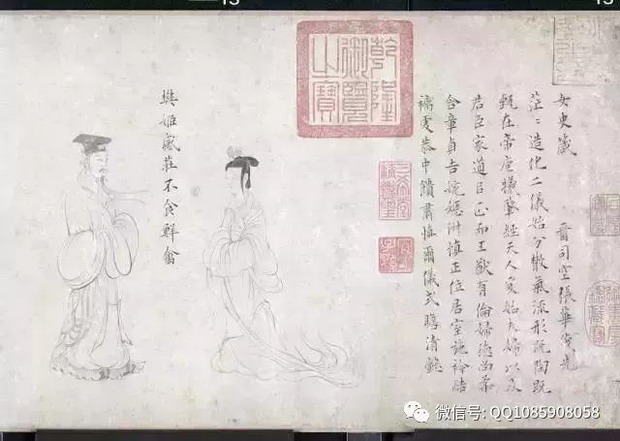 女史箴 晉司空張華茂先
茫〻造化二儀始分散氣流形既陶既
甄在帝庖犧肇經天人爰始夫婦以及
君臣家道以正而王猷有倫婦德尚柔
含章貞吉婉嫕淑慎正位居室施衿結
褵虔恭中饋肅慎爾儀式瞻清懿
乾隆御覽之寶
樊姬感莊不食鮮禽
微信号: QQ1085908058